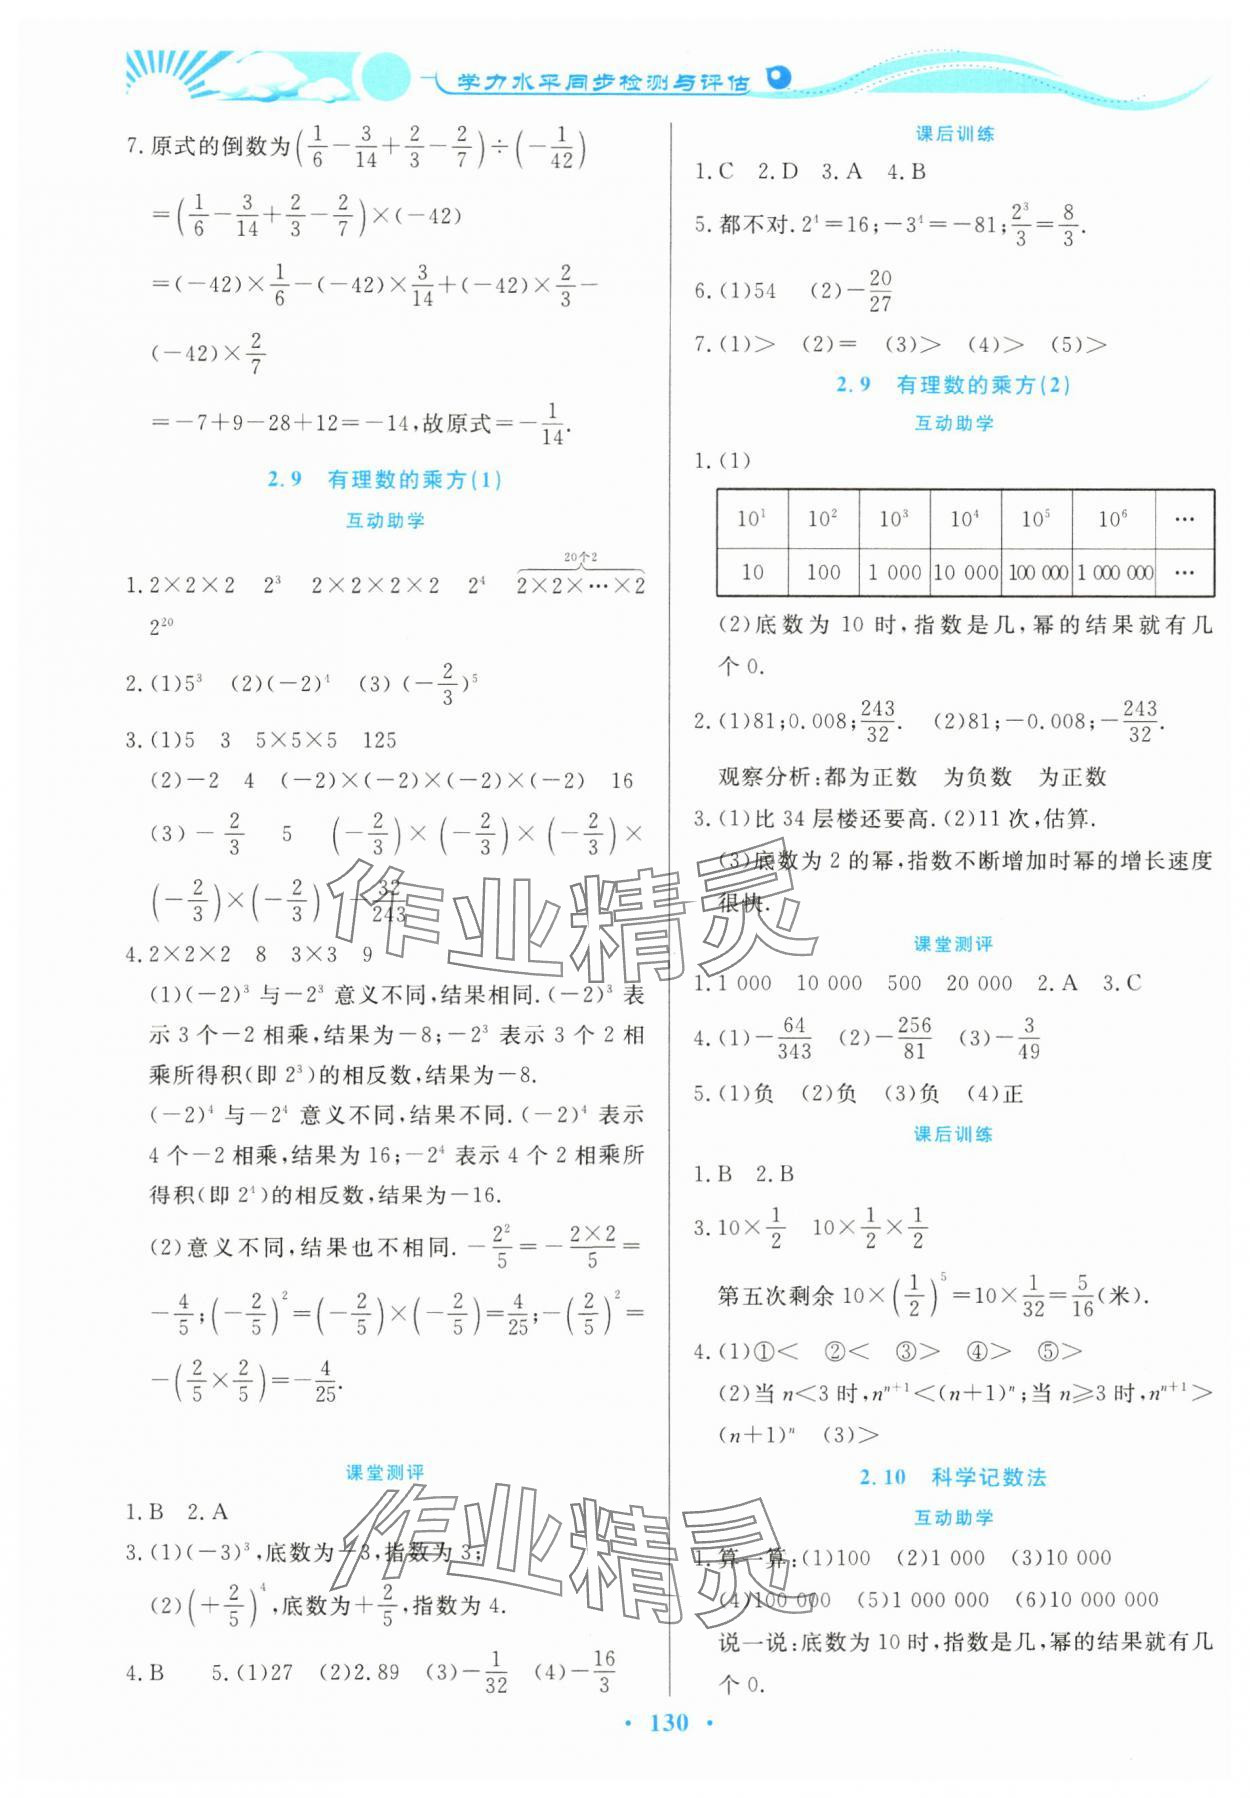 学力水平同步检测与评估
7.原式的倒数为(1/6－3/14＋2/3－2/7)÷(－1/42)
＝(1/6－3/14＋2/3－2/7)×(－42)
＝(－42)×1/6－(－42)×3/14＋(－42)×2/3－
(－42)×2/7
＝－7＋9－28＋12＝－14,故原式＝－1/14.
2.9 有理数的乘方(1)
互动助学
20个2
1.2×2×2 2³ 2×2×2×2 2⁴ 2×2×…×2
2²⁰
2.(1)5³ (2)(－2)⁴ (3)(－2/3)⁵
3.(1)5 3 5×5×5 125
(2)－2 4 (－2)×(－2)×(－2)×(－2) 16
(3)－2/3 5 (－2/3)×(－2/3)×(－2/3)×
(－2/3)×(－2/3) －32/243
4.2×2×2 8 3×3 9
(1)(－2)³与－2³意义不同,结果相同.(－2)³表
示3个－2相乘,结果为－8;－2³表示3个2相
乘所得积(即2³)的相反数,结果为－8.
(－2)⁴与－2⁴意义不同,结果不同.(－2)⁴表示
4个－2相乘,结果为16;－2⁴表示4个2相乘所
得积(即2⁴)的相反数,结果为－16.
(2)意义不同,结果也不相同.－2²/5＝－2×2/5＝
－4/5;(－2/5)²＝(－2/5)×(－2/5)＝4/25;－(2/5)²＝
－(2/5×2/5)＝－4/25.
课堂测评
1.B 2.A
3.(1)(－3)³,底数为－3,指数为3;
(2)(＋2/5)⁴,底数为＋2/5,指数为4.
4.B 5.(1)27 (2)2.89 (3)－1/32 (4)－16/3
课后训练
1.C 2.D 3.A 4.B
5.都不对.2⁴＝16;－3⁴＝－81;2³/3＝8/3.
6.(1)54 (2)－20/27
7.(1)＞ (2)＝ (3)＞ (4)＞ (5)＞
2.9 有理数的乘方(2)
互动助学
1.(1)
10¹ 10² 10³ 10⁴ 10⁵ 10⁶ …
10 100 1 000 10 000 100 000 1 000 000 …
(2)底数为10时,指数是几,幂的结果就有几
个0.
2.(1)81;0.008;243/32. (2)81;－0.008;－243/32.
观察分析:都为正数 为负数 为正数
3.(1)比34层楼还要高.(2)11次,估算.
(3)底数为2的幂,指数不断增加时幂的增长速度
很快.
课堂测评
1.1 000 10 000 500 20 000 2.A 3.C
4.(1)－64/343 (2)－256/81 (3)－3/49
5.(1)负 (2)负 (3)负 (4)正
课后训练
1.B 2.B
3.10×1/2 10×1/2×1/2
第五次剩余10×(1/2)⁵＝10×1/32＝5/16(米).
4.(1)①＜ ②＜ ③＞ ④＞ ⑤＞
(2)当n＜3时,nⁿ⁺¹＜(n＋1)ⁿ;当n≥3时,nⁿ⁺¹＞
(n＋1)ⁿ (3)＞
2.10 科学记数法
互动助学
1.算一算:(1)100 (2)1 000 (3)10 000
(4)100 000 (5)1 000 000 (6)10 000 000
说一说:底数为10时,指数是几,幂的结果就有几
个0.
作业精灵
作业精灵
· 130 ·